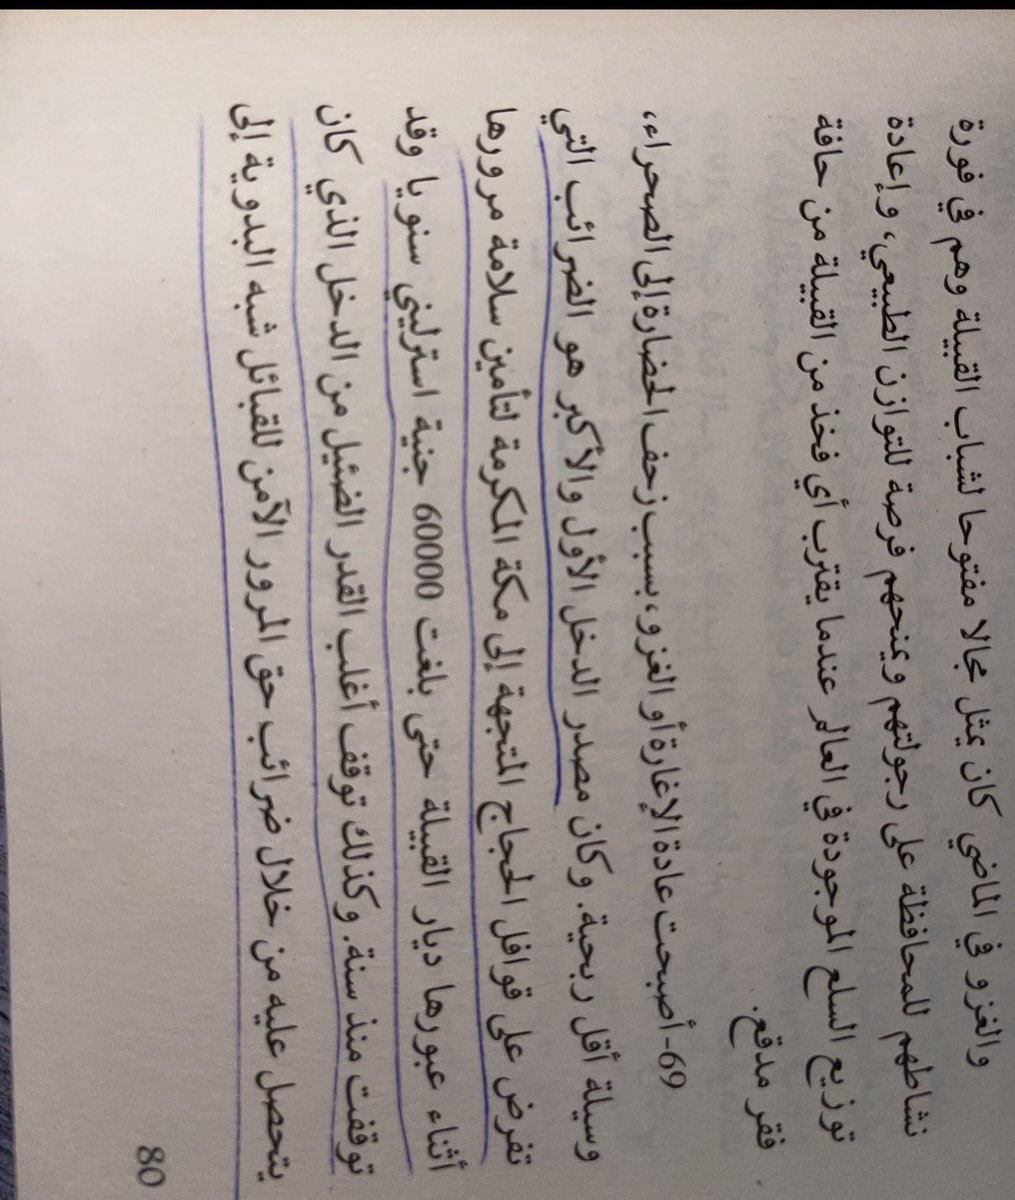 والغزو في الماضي كان يمثل مجالا مفتوحا لشباب القبيلة وهم في فورة
نشاطهم للمحافظة على رجولتهم ويمنحهم فرصة للتوازن الطبيعي، وإعادة
توزيع السلع الموجودة في العالم عندما يقترب أي فخذ من القبيلة من حافة
فقر مدقع.
69- أصبحت عادة الإغارة أو الغزو، بسبب زحف الحضارة إلى الصحراء،
وسيلة أقل ربحية. وكان مصدر الدخل الأول والأكبر هو الضرائب التي
تفرض على قوافل الحجاج المتجهة إلى مكة المكرمة لتأمين سلامة مرورها
أثناء عبورها ديار القبيلة حتى بلغت 60000 جنية استرليني سنويا وقد
توقفت منذ سنة. وكذلك توقف أغلب القدر الضئيل من الدخل الذي كان
يتحصل عليه من خلال ضرائب حق المرور الآمن للقبائل شبه البدوية إلى
80